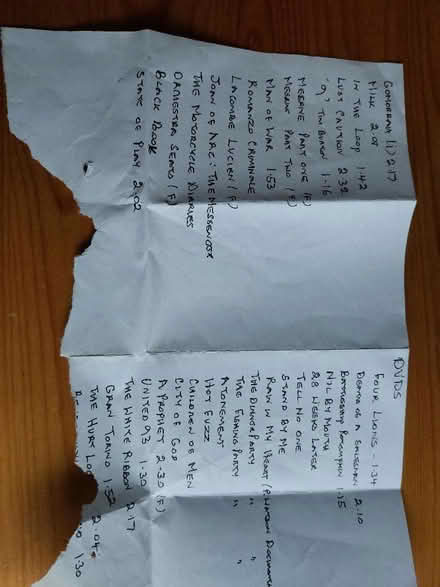 GOMORRAH (I) 2.17
MILK 2.04
IN THE LOOP 1.42
LUST CAUTION 2.32
"9" TIM BURTON 1.16
MESRINE PART ONE (F)
MESRINE PART TWO (F)
MAN OF WAR 1.53
ROMANZO CRIMINALE
LACOMBE LUCIEN (F)
JOAN OF ARC - THE MESSENGER
THE MOTORCYCLE DIARIES
ORCHESTRA SEATS (F)
BLACK BOOK
STATE OF PLAY 2.02
DVDS
FOUR LIONS 1.34
DEATH OF A SALESMAN 2.10
BATTLESHIP POTEMPKIN 1.15
NIL BY MOUTH
28 WEEKS LATER
TELL NO ONE
STAND BY ME
RAIN IN MY HEART
THE DINNER PARTY "
THE FISHING PARTY " "
ATONEMENT
HOT FUZZ
CHILDREN OF MEN
CITY OF GOD
A PROPHET 2.30 (F)
UNITED 93 1.30
THE WHITE RIBBON 2.17
GRAN TORINO 1.52
THE HURT LOC 2.04
1.30